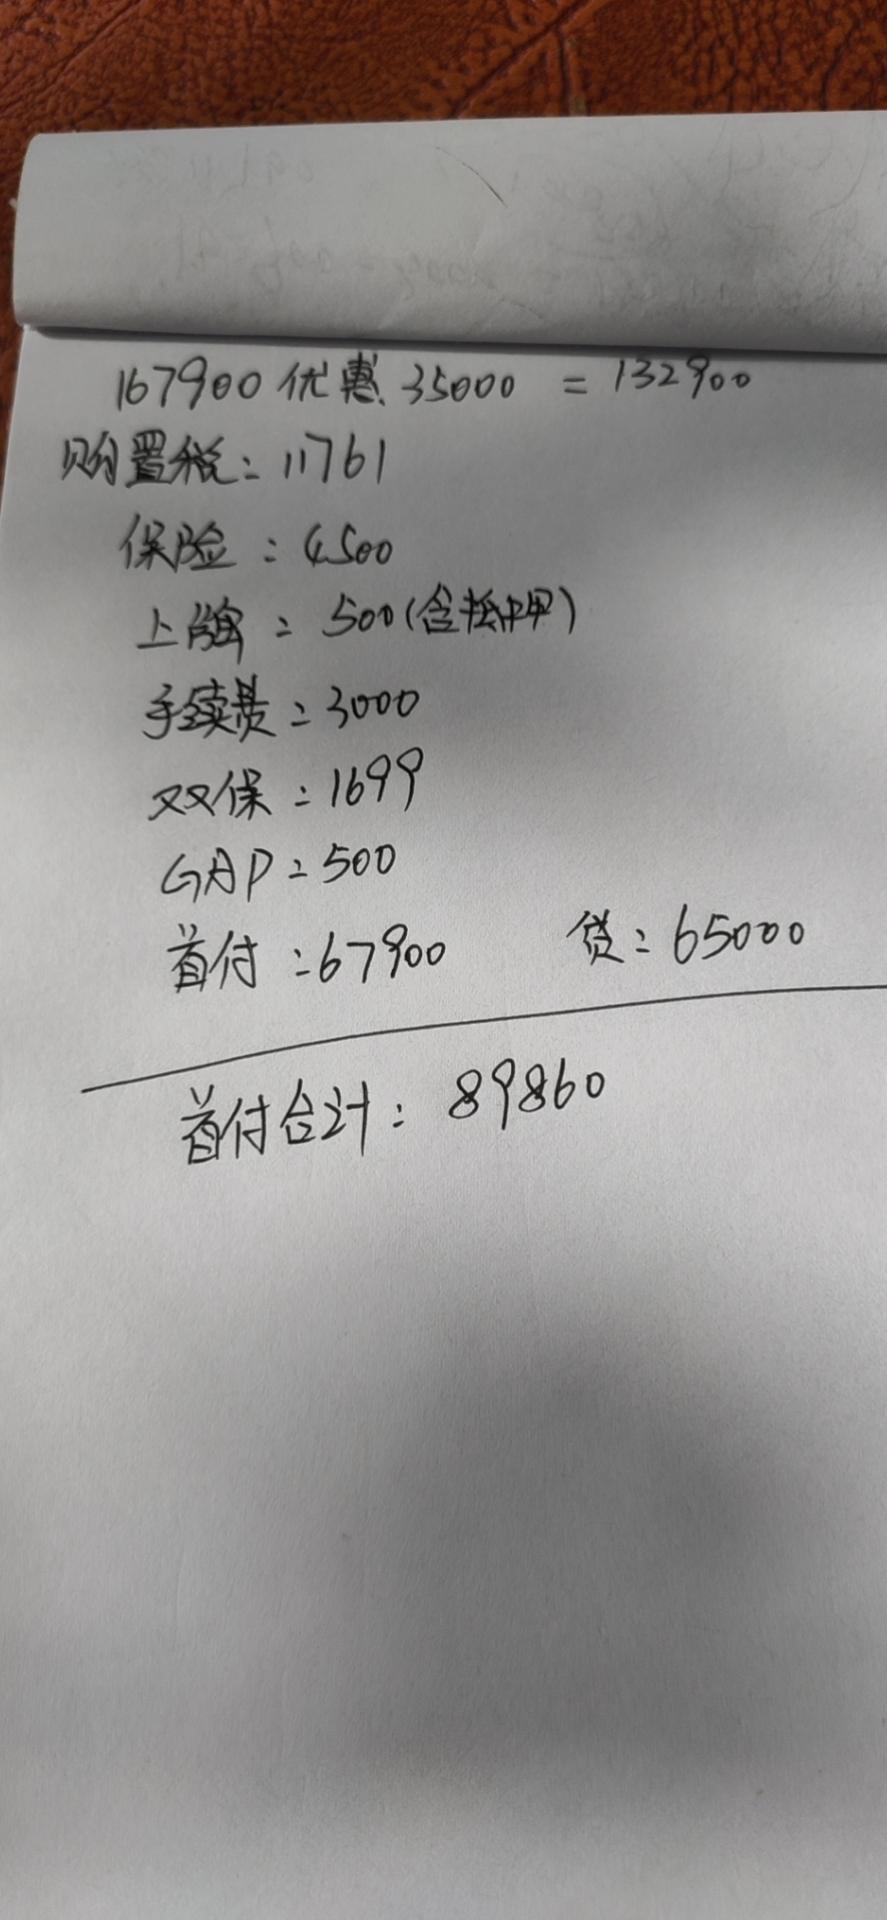 167900优惠35000 = 132900
购置税：11761
保险：4500
上牌：500（含抵押）
手续费：3000
双保：1699
GAP：500
首付：67900 贷：65000
首付合计：89860